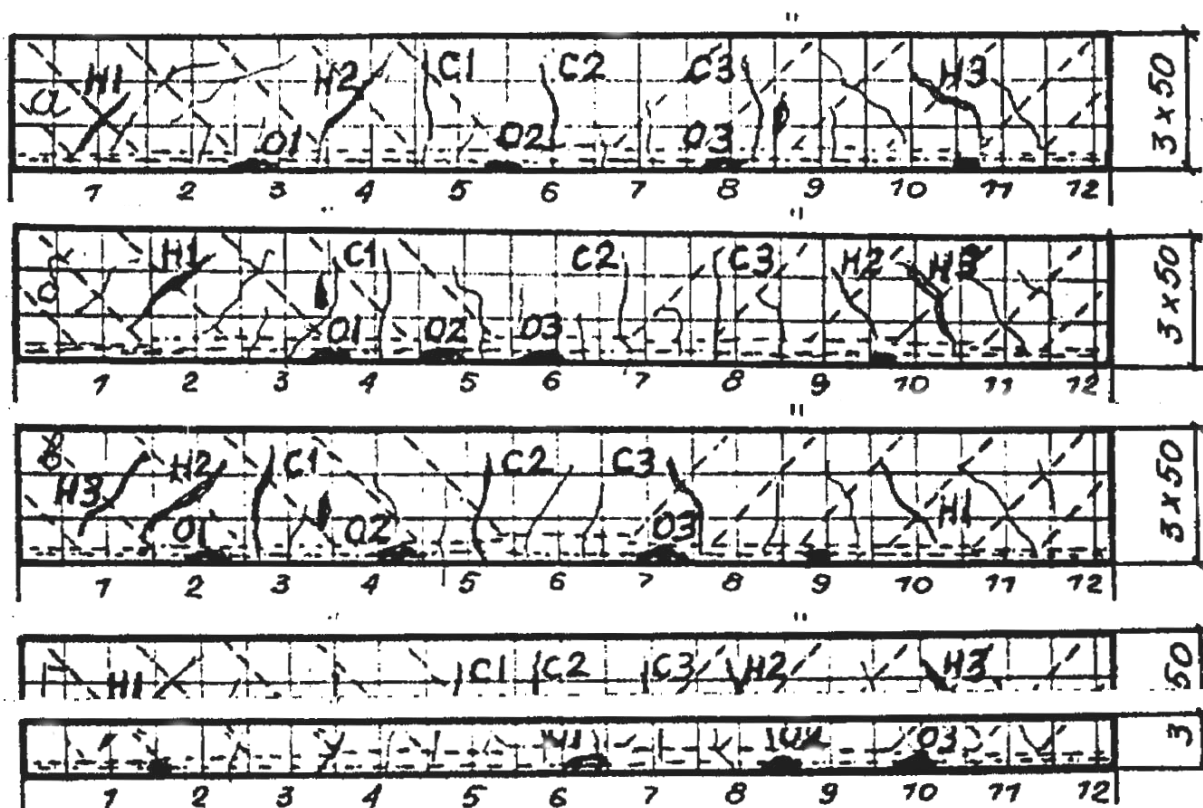 "
а H1 H2 C1 C2 C3 H3
01 02 03
3 x 50
1 2 3 4 5 6 7 8 9 10 11 12
"
б H1 C1 C2 C3 H2 H3
01 02 03
3 x 50
1 2 3 4 5 6 7 8 9 10 11 12
"
в H3 H2 C1 C2 C3 H1
01 02 03
3 x 50
1 2 3 4 5 6 7 8 9 10 11 12
"
H1 C1 C2 C3 H2 H3
50
03
3
1 2 3 4 5 6 7 8 9 10 11 12